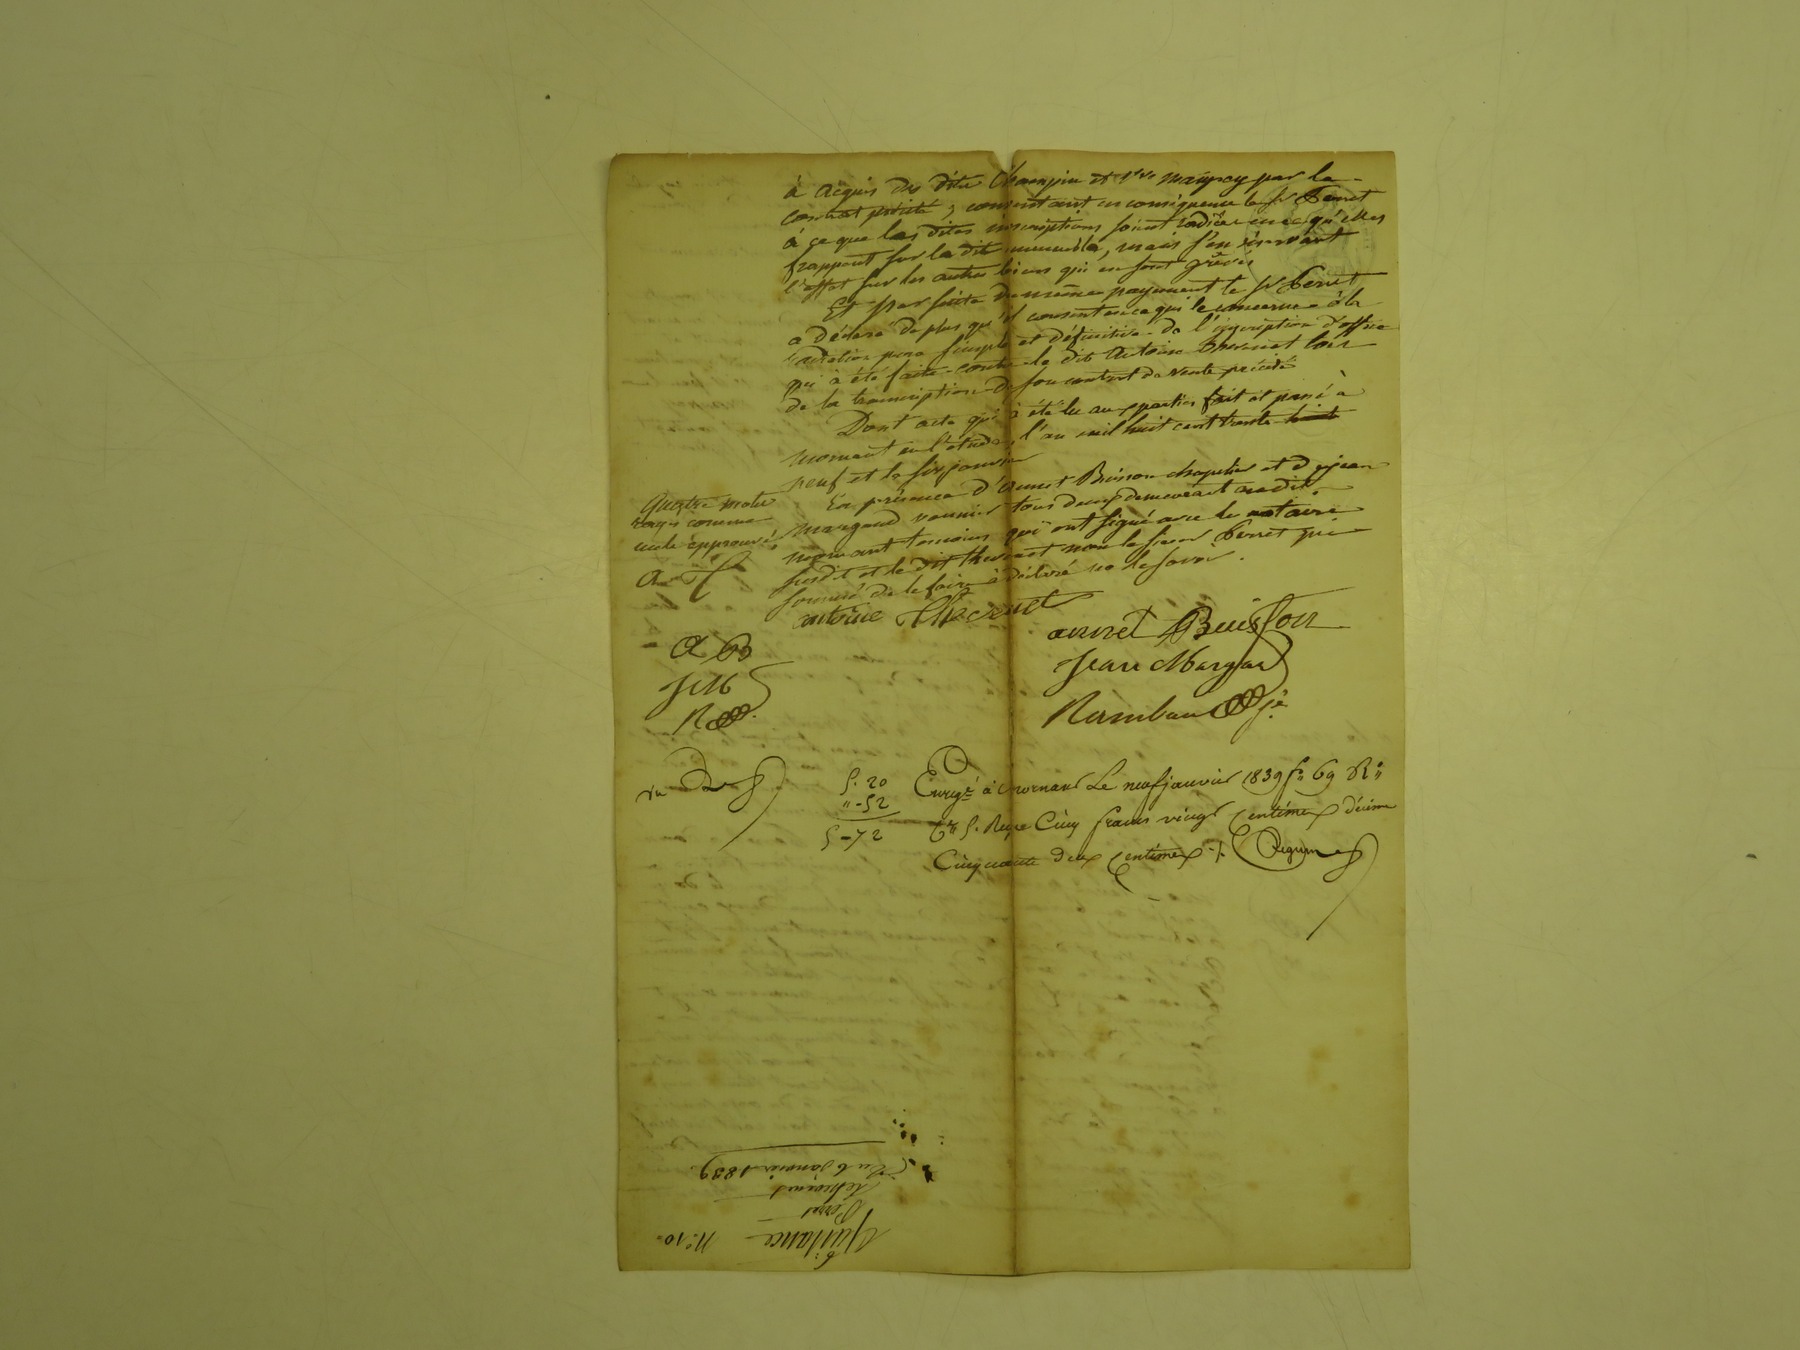 à acquis des dits Champin et Vve maupray par le
contrat précité, consentant en conséquence le Sr Perret
à ce que les dites inscriptions soient radiées en ce qu'elles
frappent sur le dit immeuble, mais s'en réservant
l'effet sur les autres biens qui en sont grévés
Et par suite du même payement le Sr Perret
a déclaré de plus qu'il consent en ce qui le concerne à la
radiation pure simple et définitive de l'inscription d'office
qui à été faite contre le dit Antoine Thevenet lors
de la transcription de son contrat de vente précité
Dont acte qui à été lu aux parties fait et passé à
mornant en l'étude, l'an mil huit cent trente huit
neuf et le six janvier
En présence d'annet Buisson chapelier et de jean
margand vannier tous deux demeurant audit
mornant temoins qui ont signé avec le notaire
susdit et le dit thevenet non le sieur Perret qui
sommé de le faire à déclaré ne le savoir.
Quatre mots
rayés comme
nuls approuvé
A T
antoine Thevenet
annet Buisson
A B
Jean Margand
J M
Rambaud
R
vu
5. 20
"-52
5-72
Enregé à mornant Le neuf janvier 1839 fo 69 Ro
Ce 5. Reçu Cinq francs vingt centimes décime
Cinquante deux centimes
Quittance
Perret
thevenet
Du 6 Janvier 1839
No 10